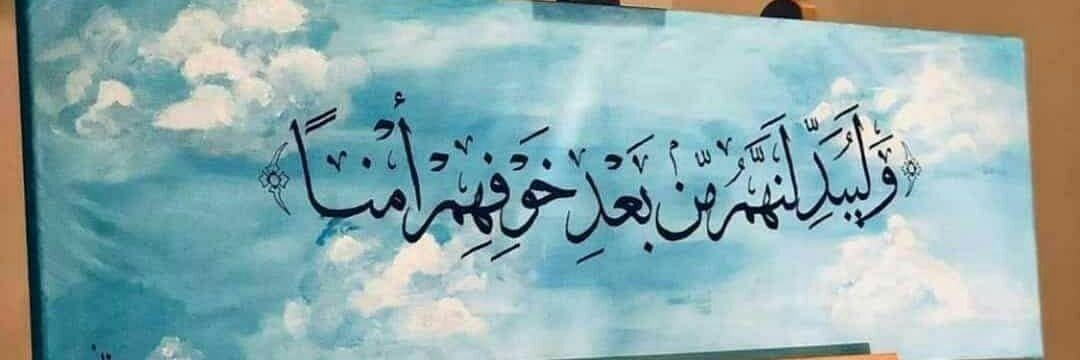 ﴿وَلَيُبَدِّلَنَّهُم مِّنۢ بَعْدِ خَوْفِهِمْ أَمْنًا﴾